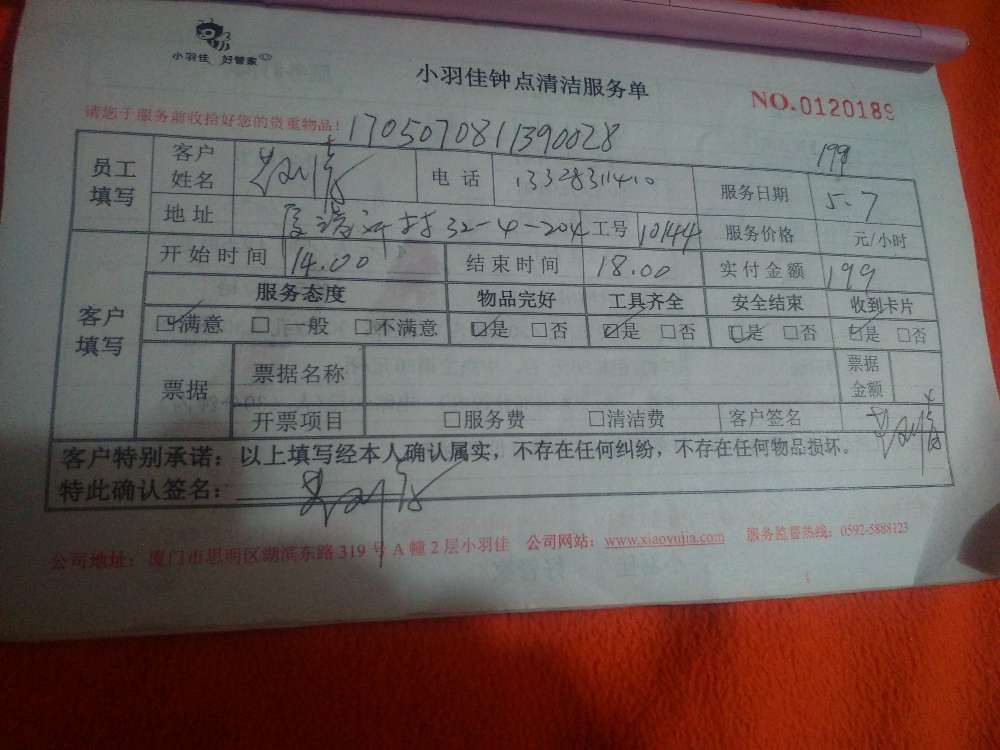 小羽佳 好管家
小羽佳钟点清洁服务单
NO.0120189
请您于服务前收拾好您的贵重物品! 1705070811390028
199
员工填写 客户姓名 电话 13328311410 服务日期 5.7
地址 32-4-204 工号 10144 服务价格 元/小时
客户填写 开始时间 14.00 结束时间 18.00 实付金额 199
服务态度 物品完好 工具齐全 安全结束 收到卡片
☑满意 □一般 □不满意 ☑是 □否 ☑是 □否 ☑是 □否 ☑是 □否
票据 票据名称 票据金额
开票项目 □服务费 □清洁费 客户签名
客户特别承诺：以上填写经本人确认属实，不存在任何纠纷，不存在任何物品损坏。
特此确认签名：
公司地址：厦门市思明区湖滨东路319号A幢2层小羽佳 公司网站：www.xiaoyujia.com 服务监督热线：0592-5888123